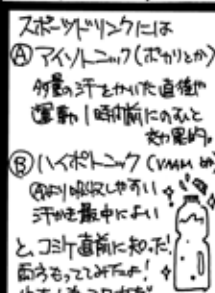 スポーツドリンクには
Ⓐアイソトニック(ポカリとか)
多量の汗をかいた直後や
運動1時間前にのむと
効果的。
Ⓑハイポトニック(VAAMとか)
Ⓐより吸収しやすい
汗かき最中によい
と、コミケ直前に知った!
両方もってみたよ!